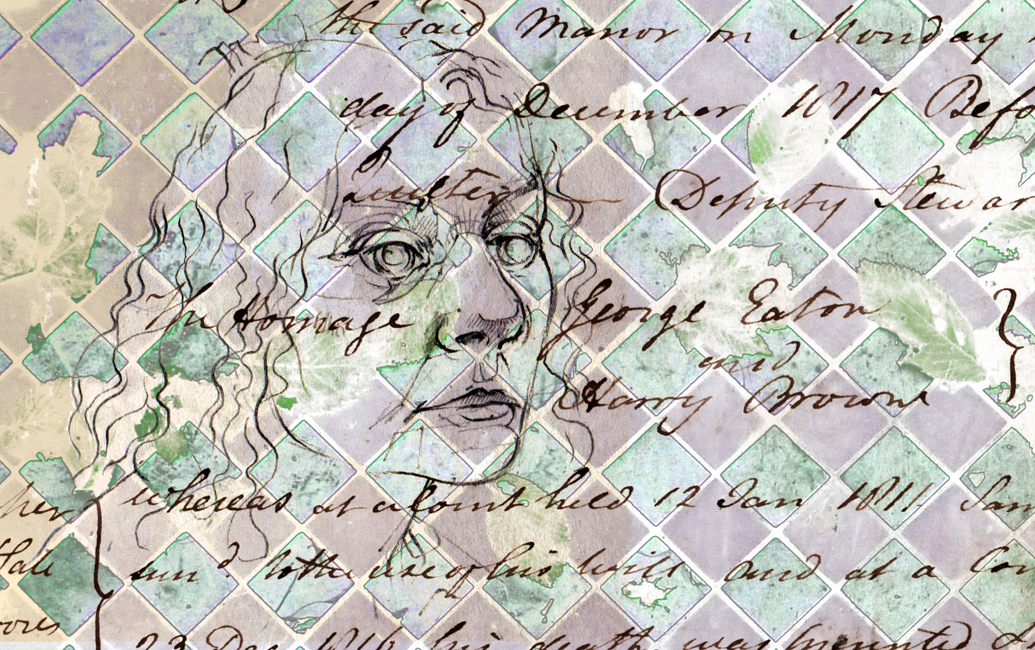 the said Manor on Monday
day of December 1817 Befo
Deputy Stewar
The Homage George Eaton
and
Harry Brown
her whereas at a Court held 12 Jan 1811 Sam
surrd to the use of his will and at a Cou
23 Dec 1816 his death was presented